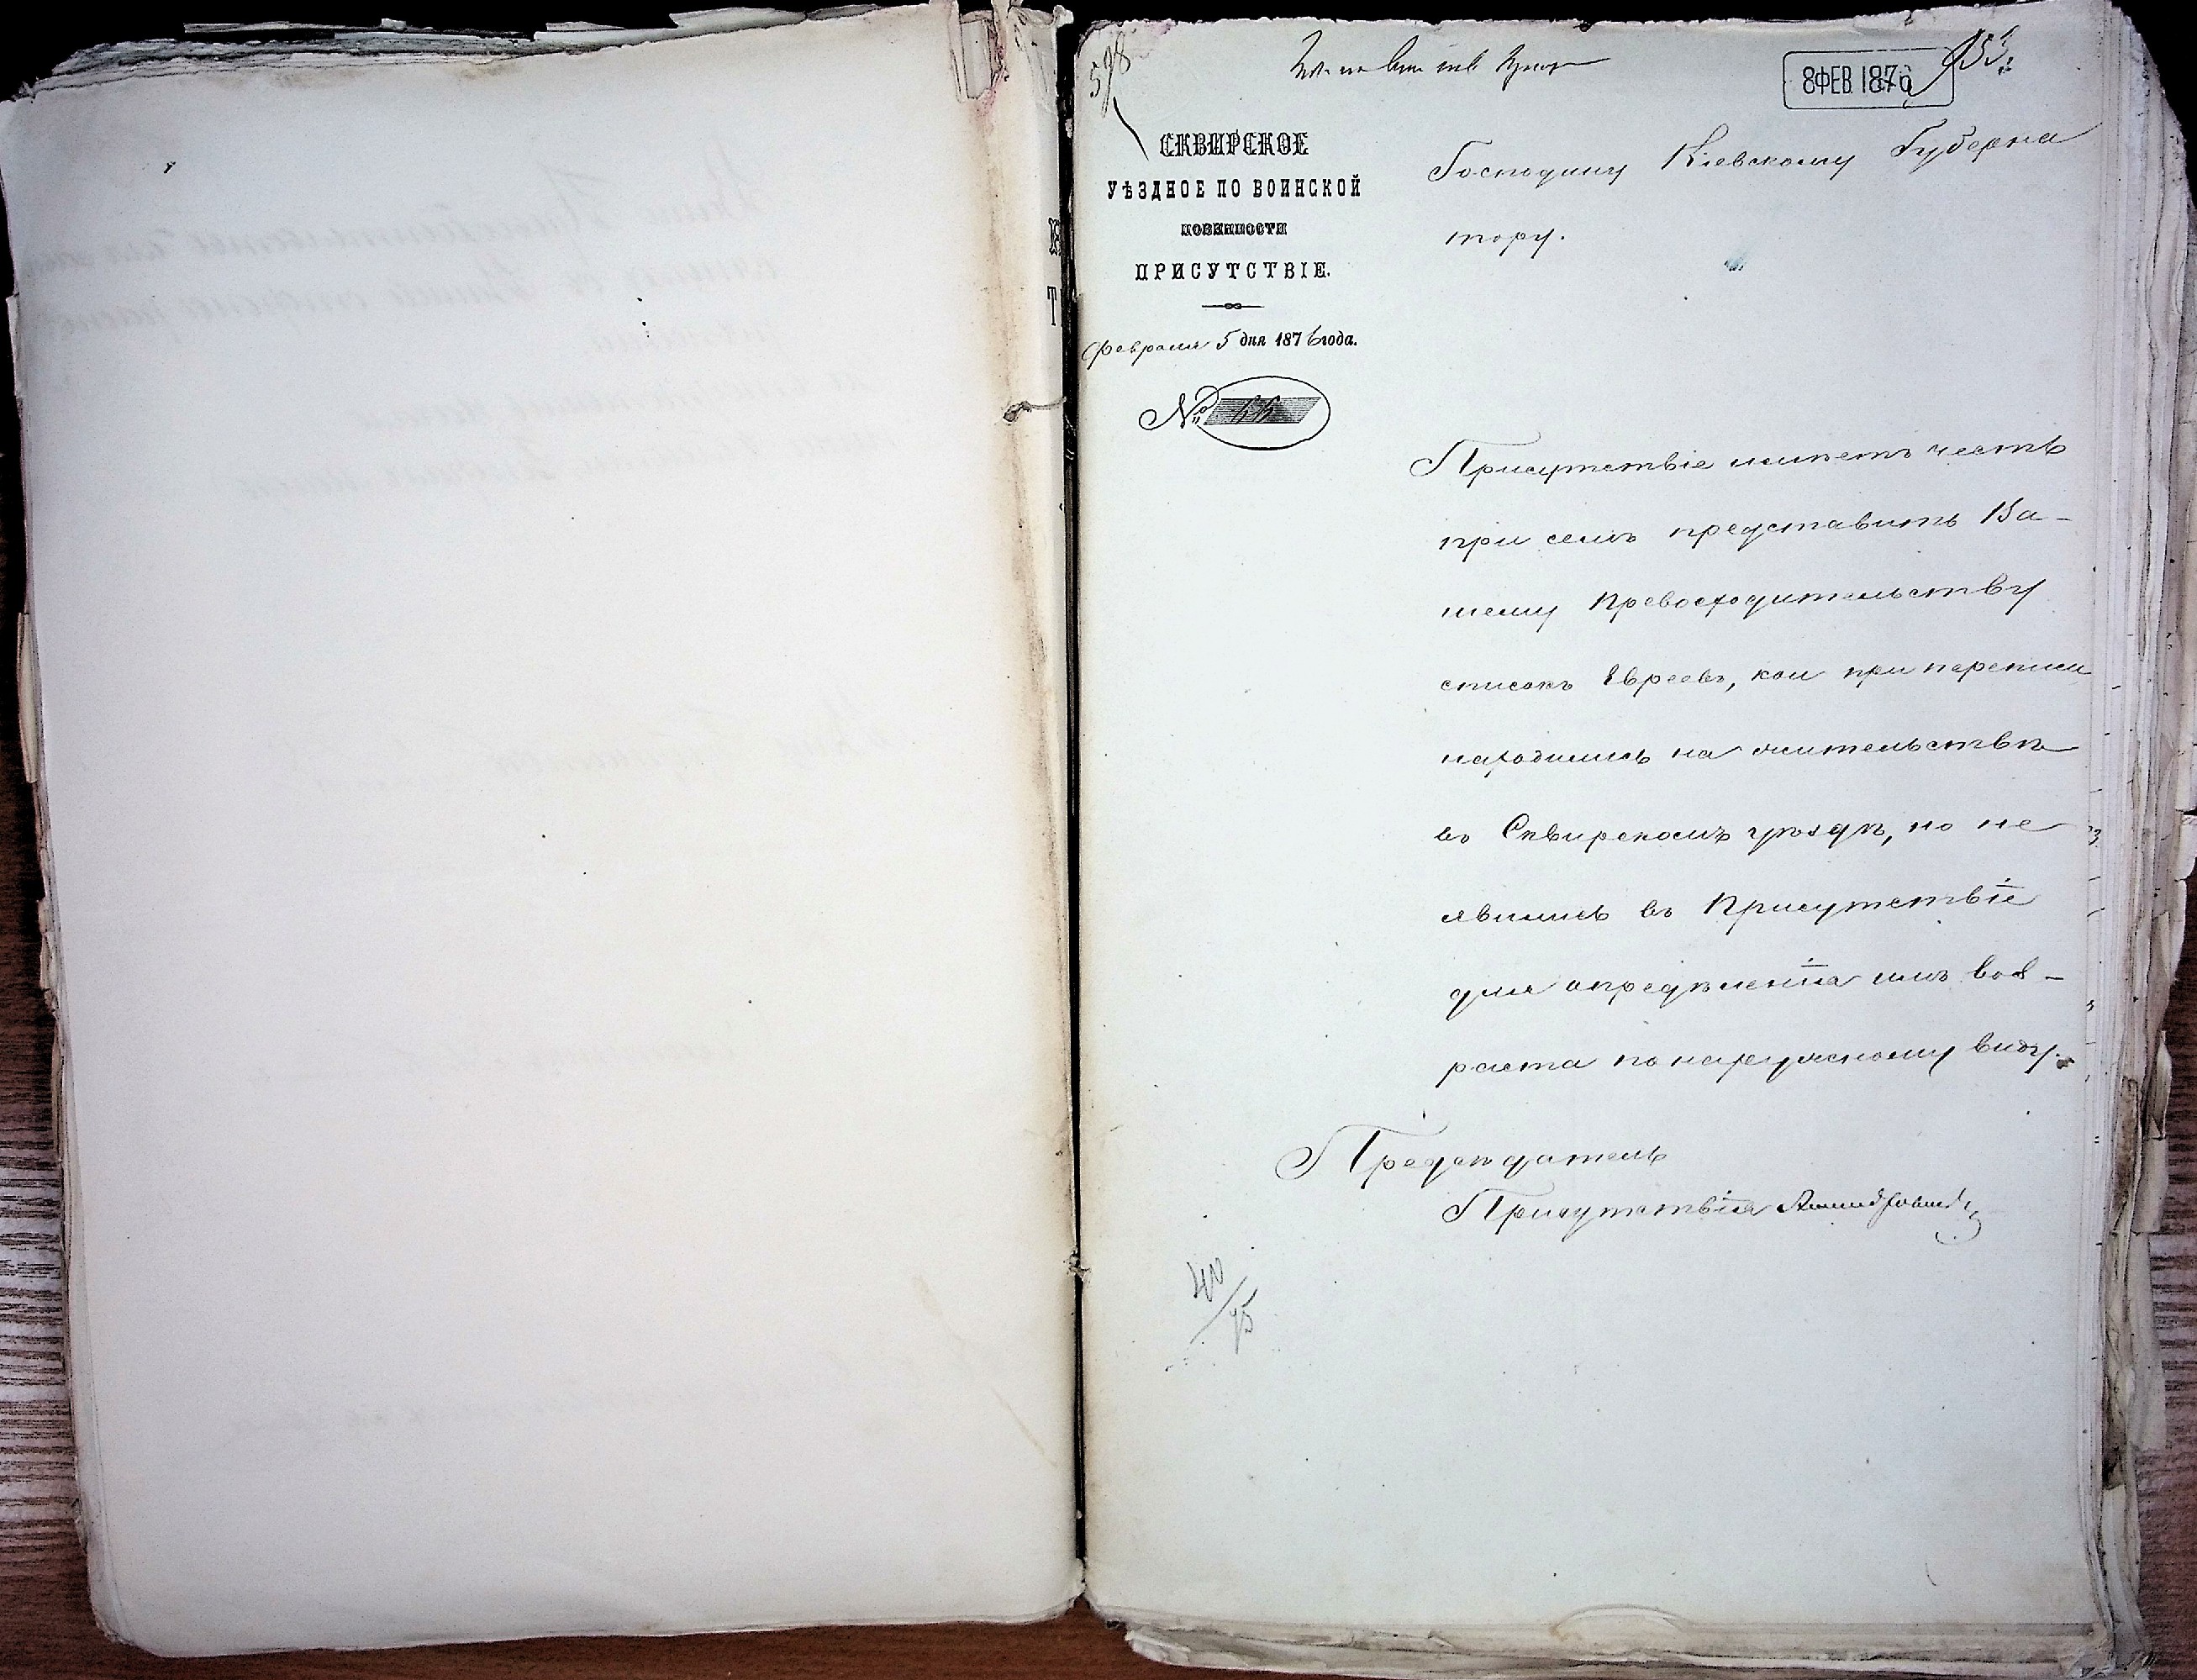 8 ФЕВ 1876
СКВИРСКОЕ
УѢЗДНОЕ ПО ВОИНСКОЙ
ПОВИННОСТИ
ПРИСУТСТВІЕ.
Февраля 5 дня 1876 года.
№ 66
Господину Кіевскому Губерна
тору.
Присутствіе имѣетъ честь
при семъ представить Ва-
шему Превосходительству
списокъ Евреевъ, кои при переписи
находились на жительствѣ
въ Сквирскомъ уѣздѣ, но не
явились въ Присутствіе
для опредѣленія имъ воз-
раста по наружному виду.
Предсѣдатель
Присутствія
40/75